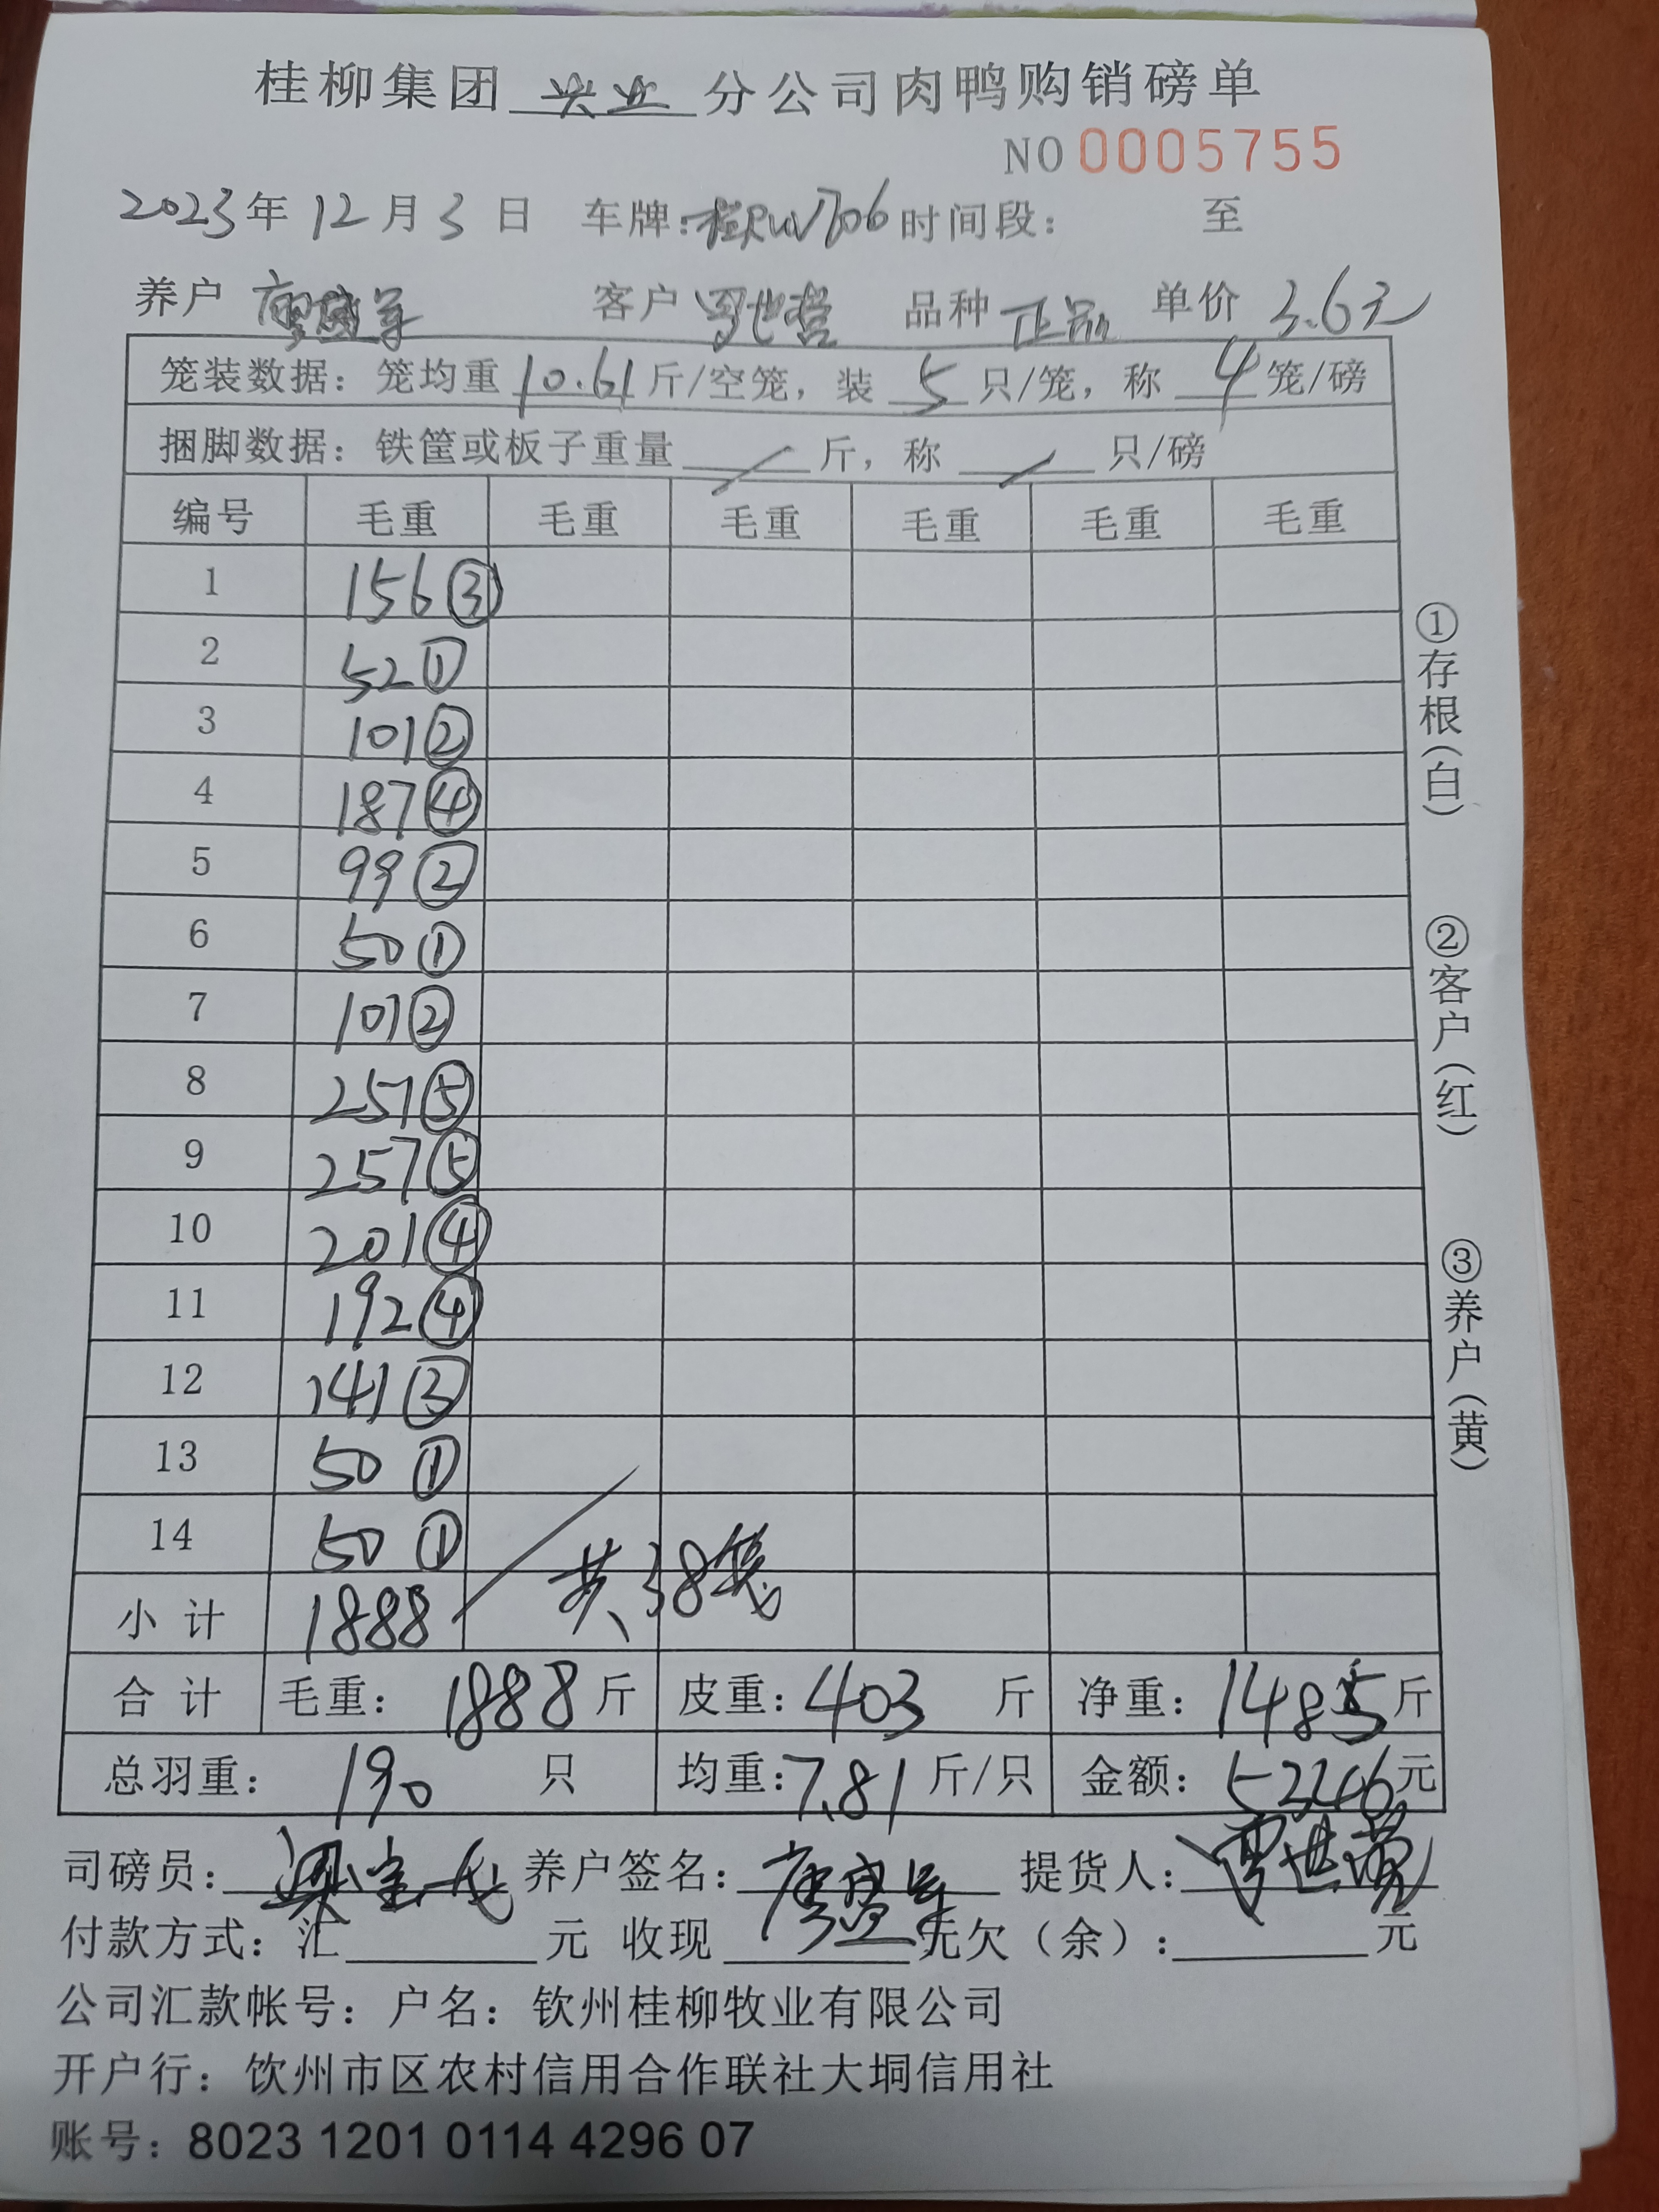 桂柳集团 兴业 分公司肉鸭购销磅单
NO 0005755
2023年 12月 3 日 车牌: 706 时间段: 至
养户 客户 品种 正品 单价 3.6元
笼装数据: 笼均重 10.61 斤/空笼, 装 5 只/笼, 称 4 笼/磅
捆脚数据: 铁筐或板子重量 / 斤, 称 / 只/磅
编号 毛重 毛重 毛重 毛重 毛重 毛重
1 156 ③
2 52 ①
3 101 ②
4 187 ④
5 99 ②
6 50 ①
7 101 ②
8 251 ⑤
9 257 ⑤
10 201 ④
11 192 ④
12 141 ③
13 50 ①
14 50 ①
小计 1888 共38笼
合计 毛重: 1888 斤 皮重: 403 斤 净重: 1485 斤
总羽重: 190 只 均重: 7.81 斤/只 金额: 5346 元
司磅员: 养户签名: 提货人:
付款方式: 汇 元 收现 元欠(余): 元
公司汇款帐号: 户名: 钦州桂柳牧业有限公司
开户行: 钦州市区农村信用合作联社大垌信用社
账号: 8023 1201 0114 4296 07
①存根(白)
②客户(红)
③养户(黄)